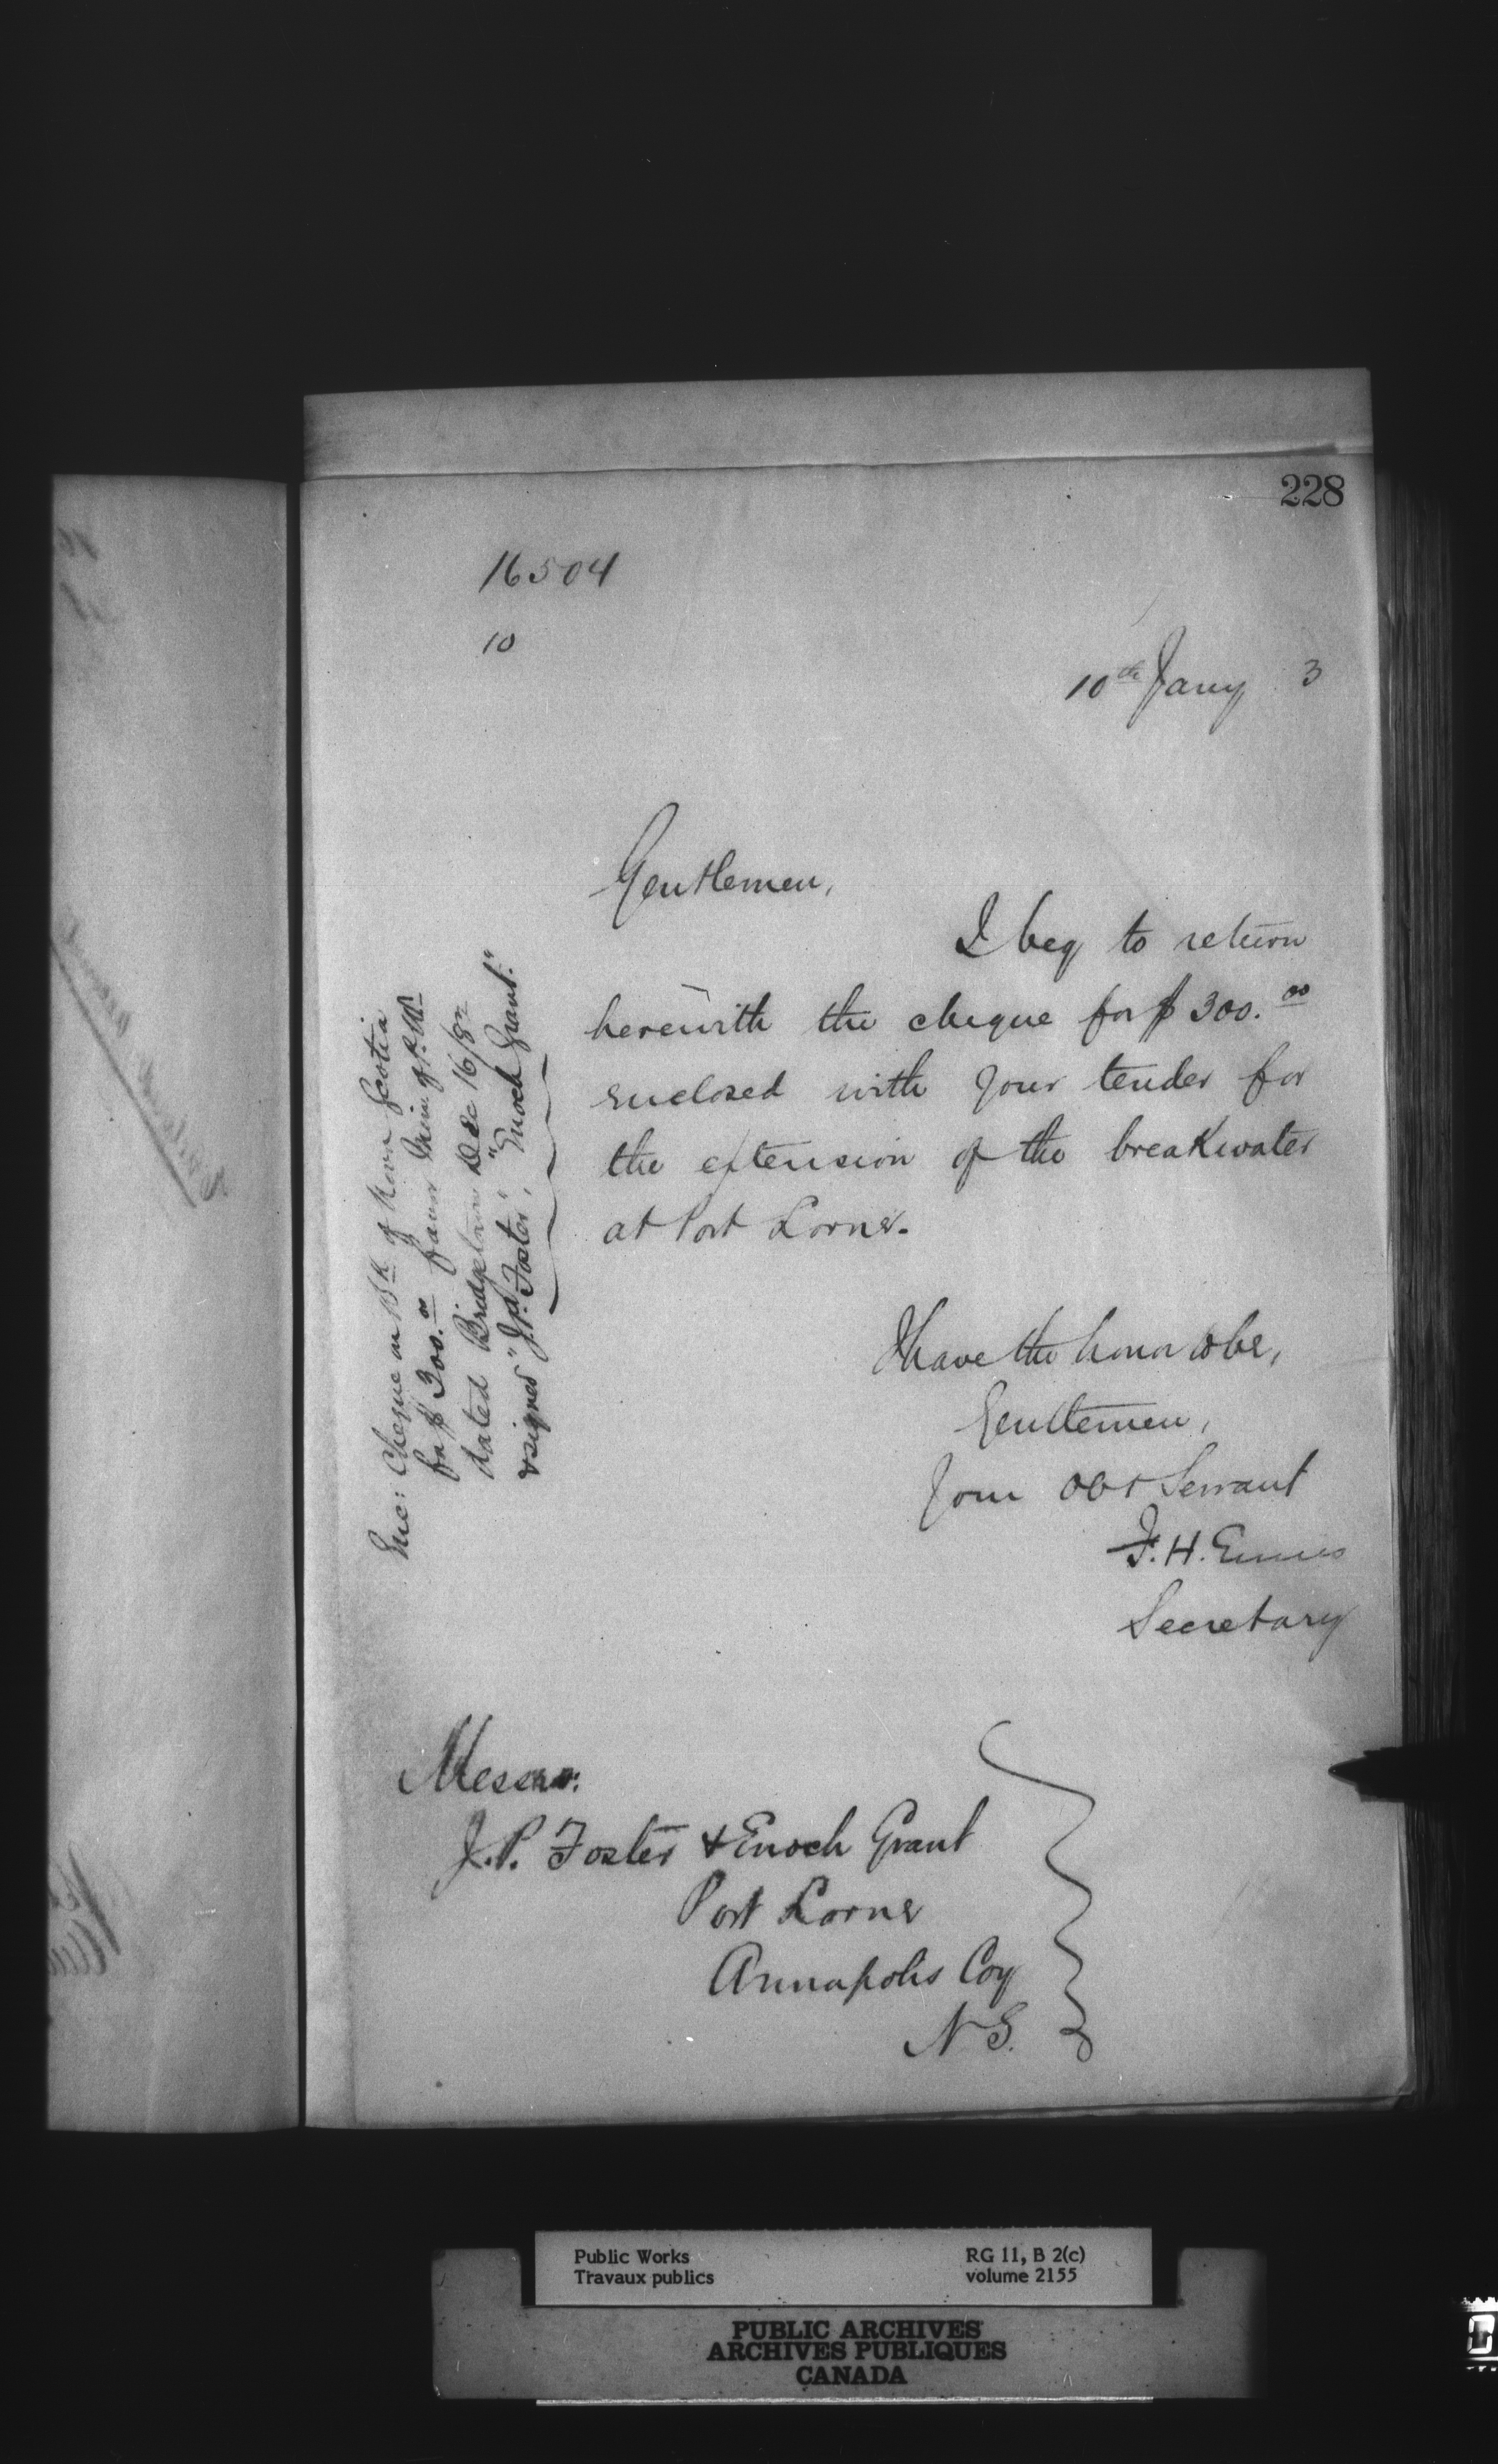 228
16504
10
10th Jany 3
Gentlemen,
I beg to return
herewith the cheque for $300.00
enclosed with your tender for
the extension of the breakwater
at Port Lorne.
I have the honor to be,
Gentlemen,
Your Obt Servant
F. H. Ennis
Secretary
Enc: Cheque on Bk of Nova Scotia
for $300.00 favor Min of P.W.
dated Bridgetown Dec 16/82
& signed "J.P. Foster", "Enoch Grant."
Messrs.
J. P. Foster & Enoch Grant
Port Lorne
Annapolis Coy
N S.
Public Works
Travaux publics
RG 11, B 2(c)
volume 2155
PUBLIC ARCHIVES
ARCHIVES PUBLIQUES
CANADA